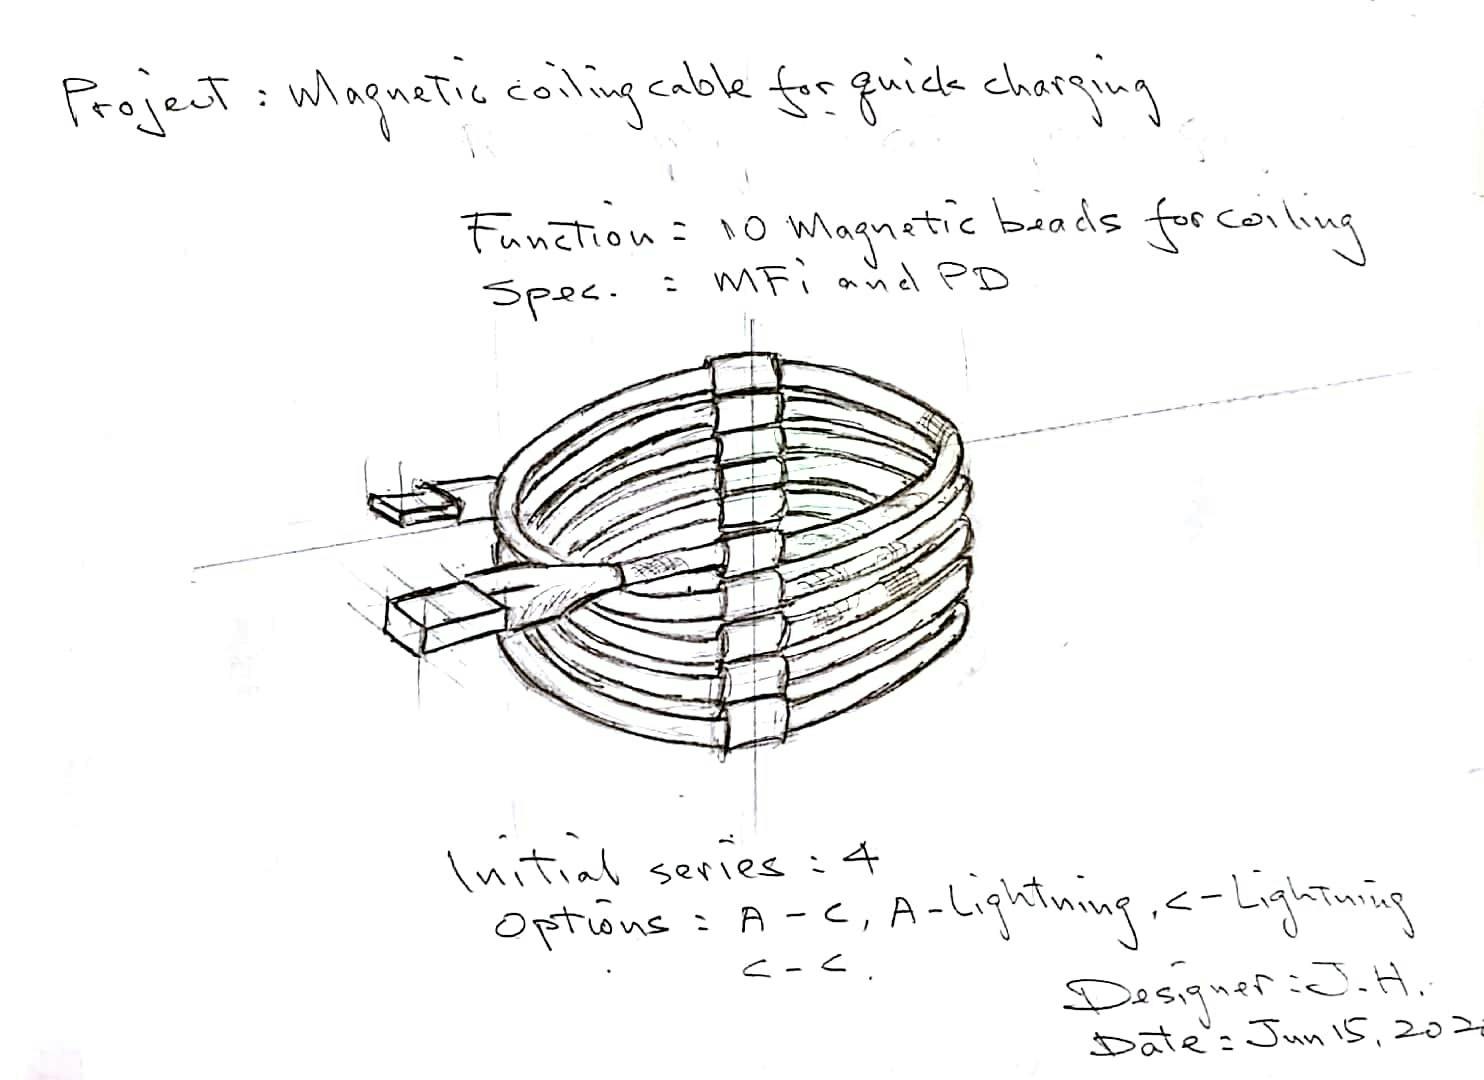 Project : Magnetic coiling cable for quick charging
Function = 10 Magnetic beads for coiling
Spec. : MFi and PD
Initial series : 4
Options : A - C, A - Lightning, C - Lightning
C - C.
Designer : J. H.
Date : Jun 15,